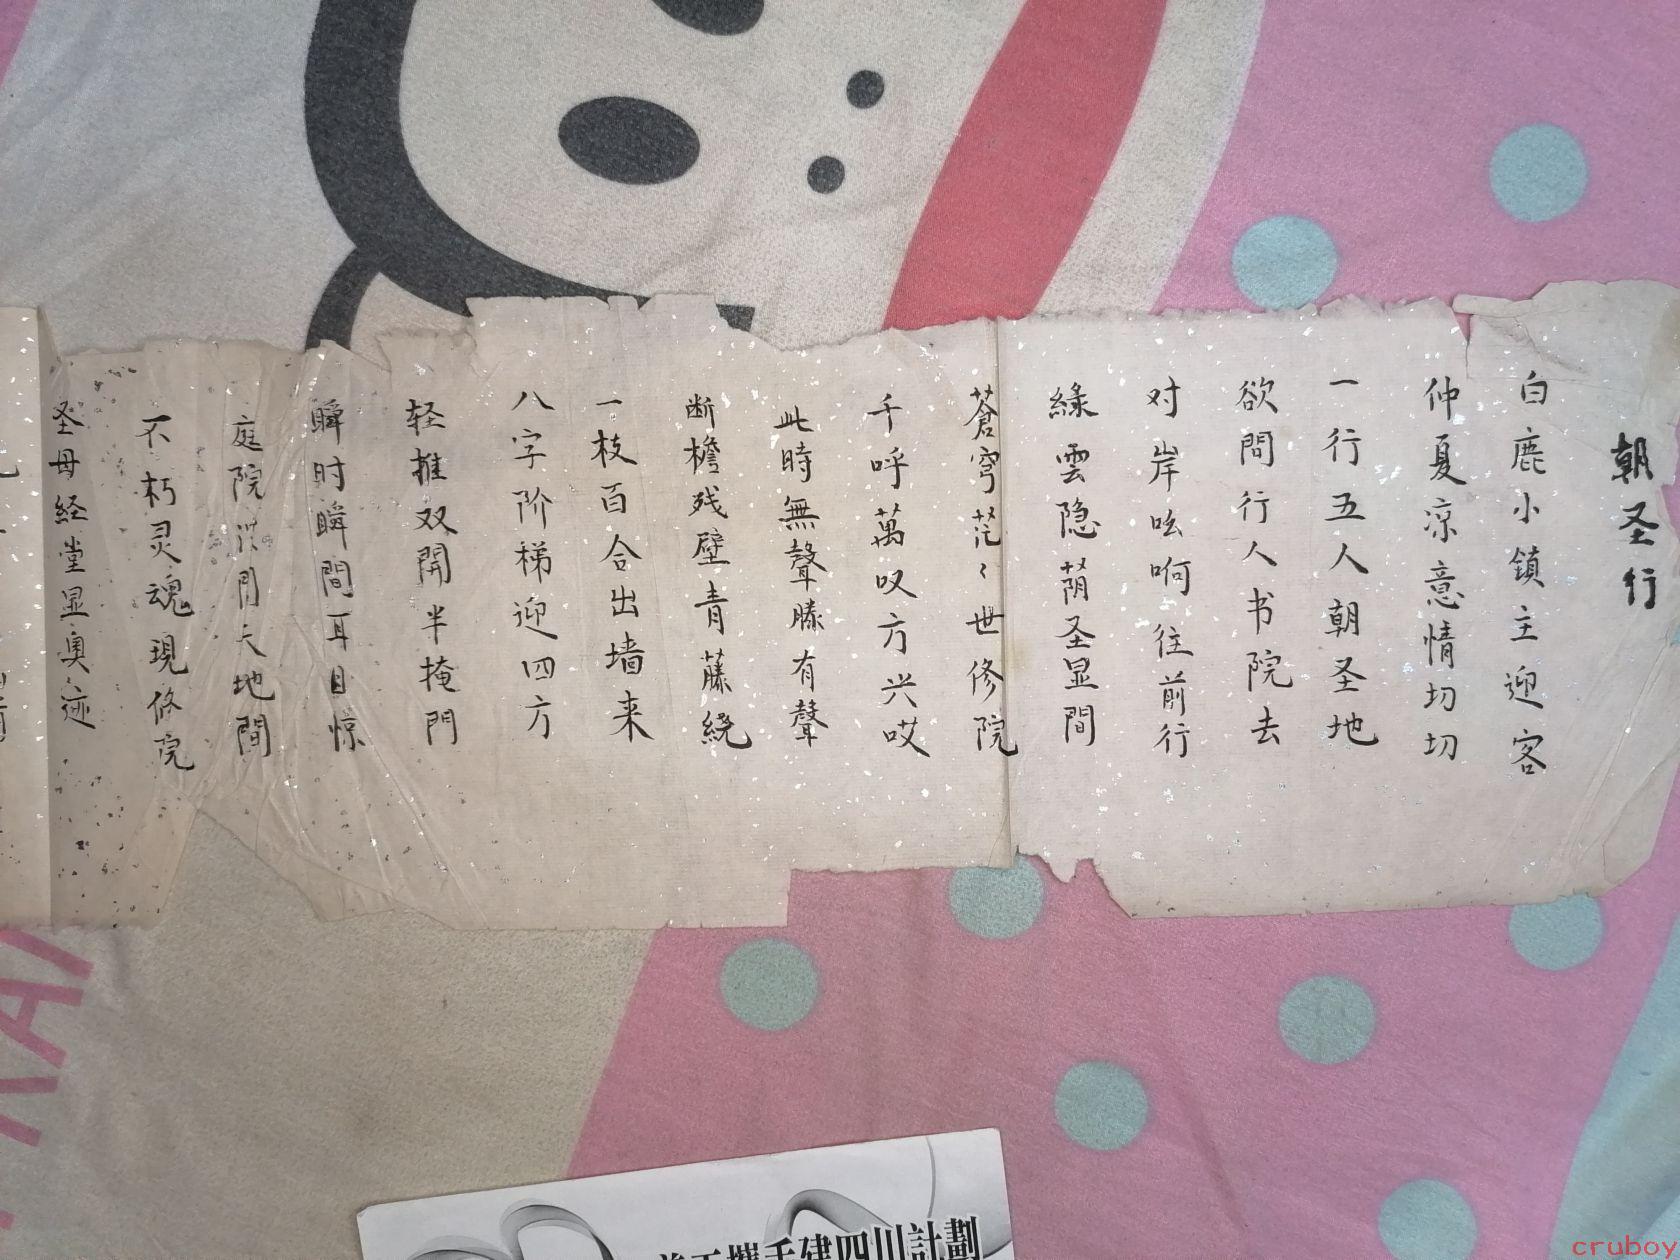 朝圣行
白鹿小鎮主迎客
仲夏凉意情切切
一行五人朝圣地
欲問行人书院去
对岸吆响往前行
緣雲隐荫圣显間
蒼穹茫々世修院
千呼萬叹方兴哎
此時無聲勝有聲
断檐残壁青藤繞
一枝百合出墙来
八字阶梯迎四方
轻推双開半掩門
瞬时瞬間耳目惊
庭院 門天地間
不朽灵魂現修院
圣母经堂显奥迹
手建四川計劃
cruboy